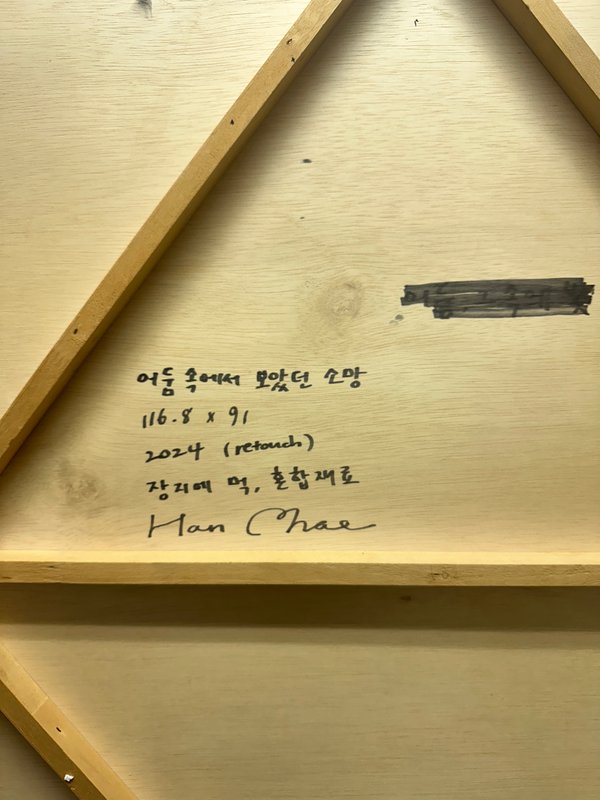 어둠 속에서 보았던 소망
116.8 x 91
2024 (retouch)
장지에 먹, 혼합재료
Han Chae